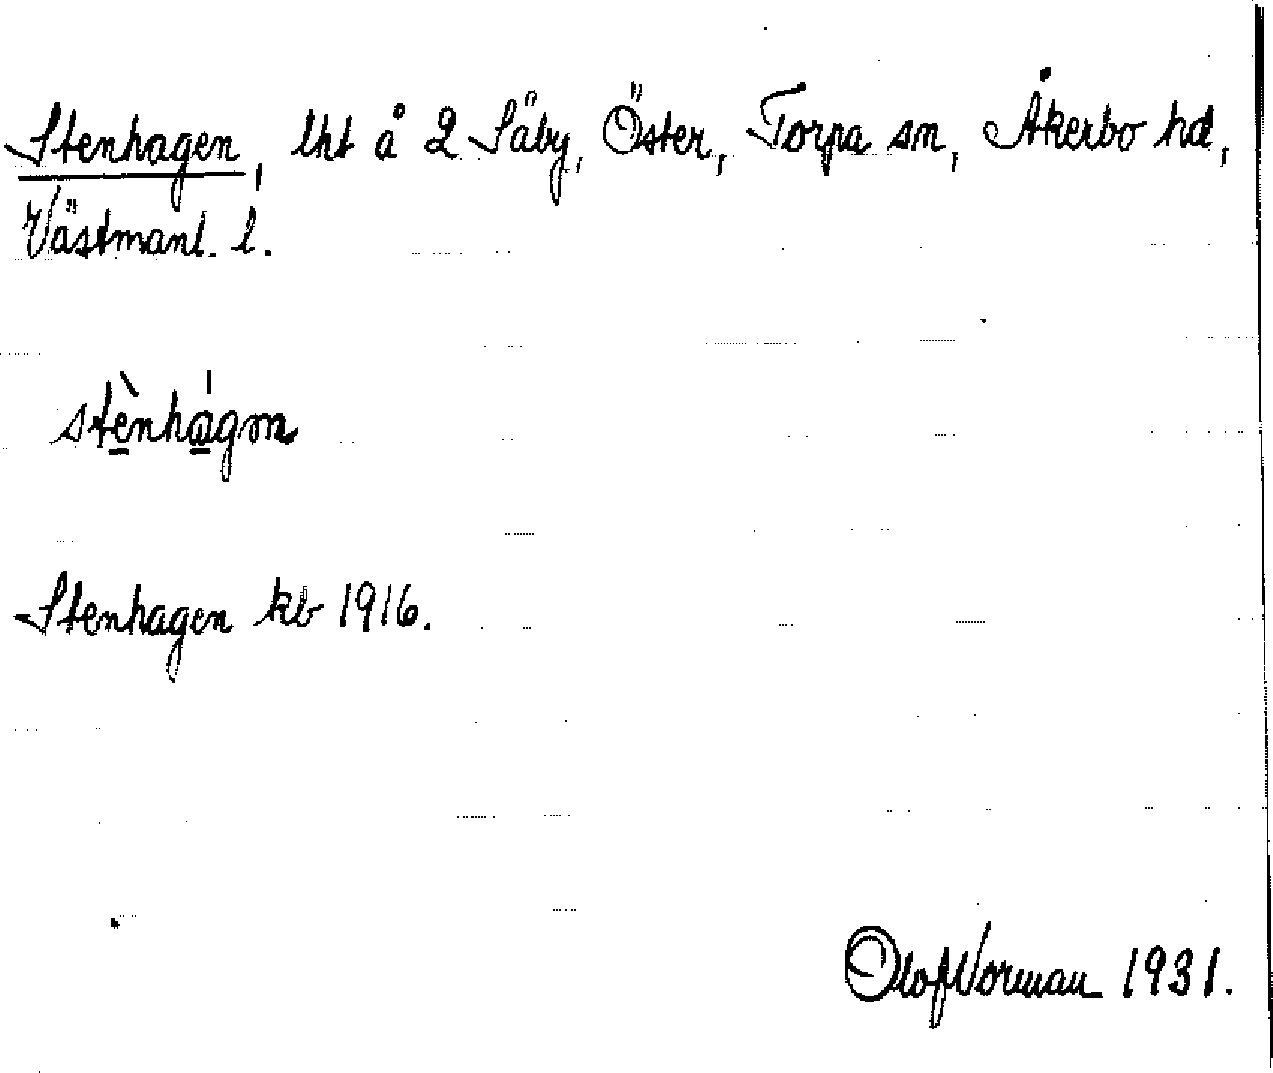 Stenhagen, lht å 2 Säby, Öster, Torpa sn, Åkerbo hd,
Västmanl. l.
stènhágən
Stenhagen kb 1916.
Olof Norman 1931.